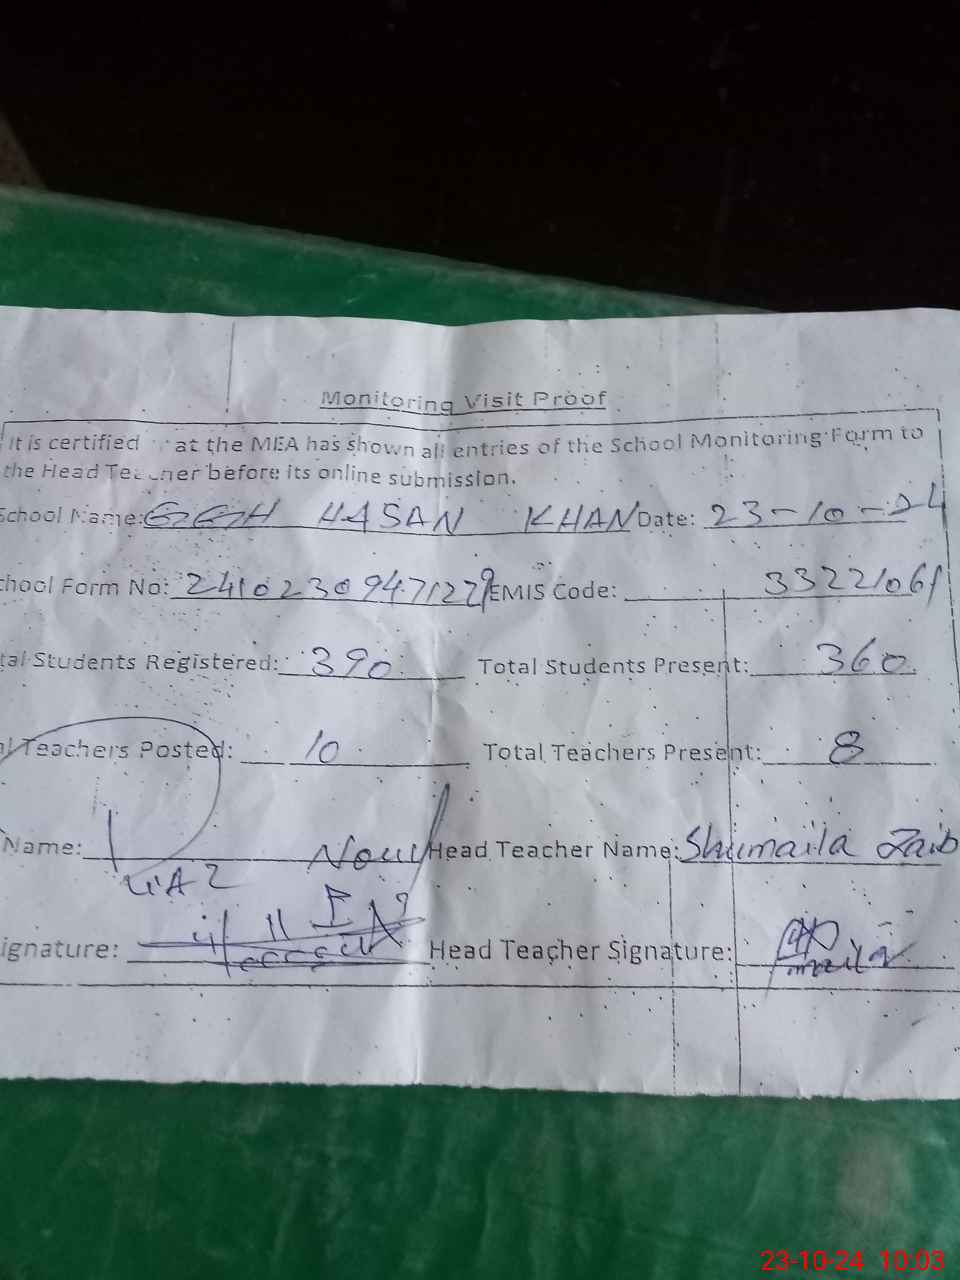 Monitoring Visit Proof
It is certified at the MEA has shown all entries of the School Monitoring Form to
the Head Teacher before its online submission.
School Name: GGH HASAN KHAN Date: 23-10-24
chool Form No: 24102309471229 EMIS Code: 33221061
tal Students Registered: 390 Total Students Present: 360
al Teachers Posted: 10 Total Teachers Present: 8
Name: Head Teacher Name: Shumaila Zaib
ignature: Head Teacher Signature:
23-10-24 10:03